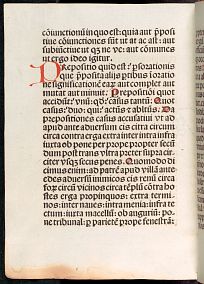 cōiunctionū in quo est: quia aut p̄positiue cōiunctiones sūt ut at ac ast: aut
subiūctiue ut qꝫ ne ve: aut cōmunes
ut ergo ideo igitur.
Prepositio quid est? ps orationis
que p̄posita alijs ptibus ī oratione
significationē eaꝝ aut complet aut
mutat aut minuit. Prepositiōi quot
accidūt? vnū: qd? casus tantū. Quot
casus? duo: qui? actūs ⁊ abltūs. Da
prepositiones casus accusatiui vt ad
apud ante aduersum cis citra circum
circa contra erga extra inter intra infra
iuxta ob pone per prope propter secūdum
post trans vltra preter supra circiter
vsqꝫ secus penes. Quomodo dicimus
enim: ad patrē apud villā ante
edes aduersū inimicos cis renū citra
forū circū vicinos circa tēplū cōtra hostes
erga propinquos: extra terminos:
inter naues: intra menia: infra tectum:
iuxta macellū: ob auguriū: pone
tribunal: p parietē prope fenestrā: